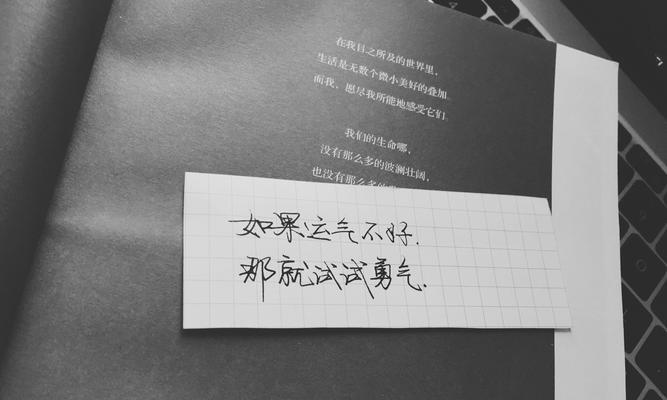 在我目之所及的世界里,
生活是无数个微小美好的叠加。
而我，愿尽我所能地感受它们。
我们的生命哪,
没有那么多的波澜壮阔,
也没有那么多的
如果运气不好.
那就试试勇气.